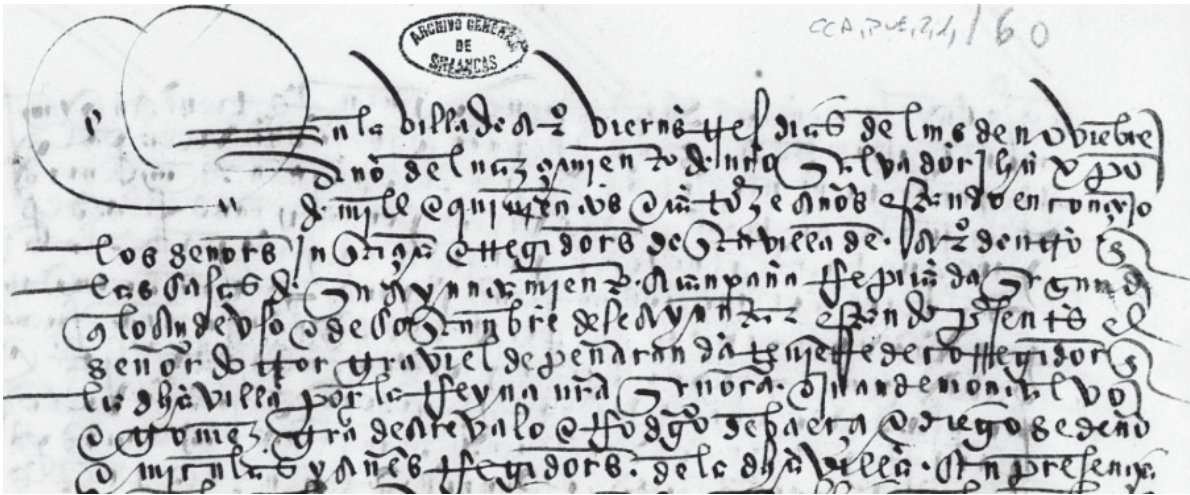 CCA, PUE, 2, 1, 160
ARCHIVO GENERAL
DE
SIMANCAS
En la villa de viernes tres dias del mes de novienbre
año del naçimiento de nro Salvador ihũ xpo
de mill e quinientos e catorze años estando en conçejo
los señores justiçia e rregidores desta villa de dentro
las casas de su ayuntamiento a canpana rrepicada segund
que lo an de uso e de costunbre de se ayuntar estando presentes el
señor dottor graviel de peñaranda teniente de corregidor
la dha villa por la rreyna nra señora e juan de montalvo
e gomez grã de arevalo e rrodgo de baeça e diego sedeño
e niculas yañes rregidores de la dha villa en presençia